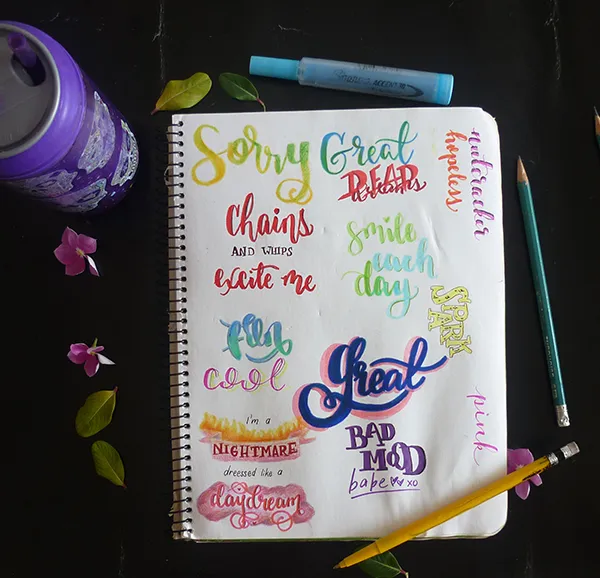 Sorry
Great
DEAD
dreams
hopeless
nutcracker
Chains
AND WHIPS
excite me
smile
each
day
SPARK
cool
great
pink
I'm a
NIGHTMARE
dressed like a
daydream
BAD
MOOD
babe xo